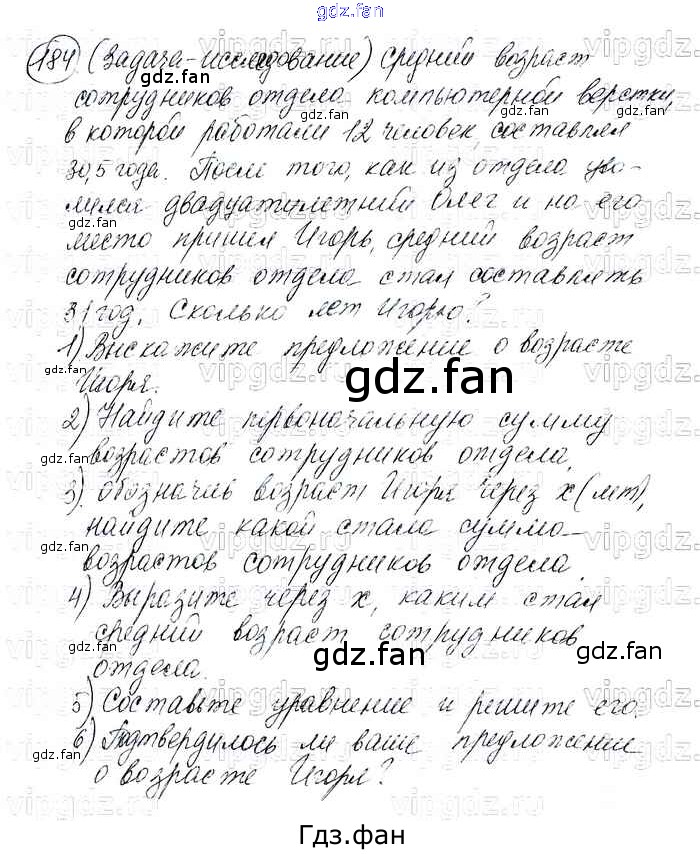 gdz.fan
184 (Задача-исследование) Средний возраст
сотрудников отдела компьютерной верстки,
в которой работали 12 человек, составлял
30,5 года. После того, как из отдела уво-
лился двадцатилетний Олег и на его
место пришел Игорь, средний возраст
сотрудников отдела стал составлять
31 год. Сколько лет Игорю?
1) Выскажите предложение о возрасте
Игоря.
gdz.fan
2) Найдите первоначальную сумму
возрастов сотрудников отдела.
3) обозначив возраст Игоря через x (лет),
найдите какой стала сумма
возрастов сотрудников отдела
4) Выразите через x, каким стал
средний возраст сотрудников
отдела.
5) Составьте уравнение и решите его.
6) Подтвердилось ли ваше предложение
о возрасте Игоря?
Гдз.фан